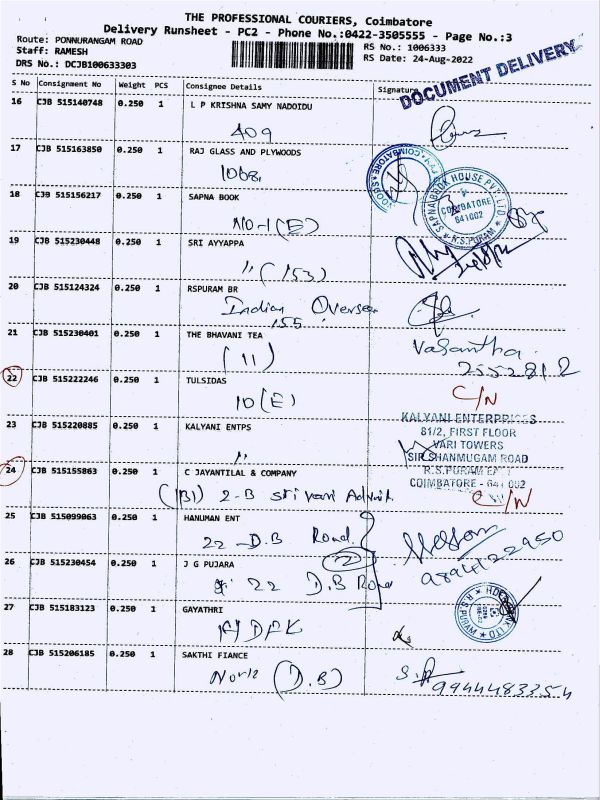 THE PROFESSIONAL COURIERS, Coimbatore
Delivery Runsheet - PC2 - Phone No.:0422-3505555 - Page No.:3
Route: PONNURANGAM ROAD
Staff: RAMESH
DRS No.: DCJB100633303
1006333
RS No.: 1006333
RS Date: 24-Aug-2022
DOCUMENT DELIVERY
S No Consignment No Weight PCS Consignee Details Signature
16 CJB 515140748 0.250 1 L P KRISHNA SAMY NADOIDU
409
17 CJB 515163850 0.250 1 RAJ GLASS AND PLYWOODS
108
COIMBATORE
18 CJB 515156217 0.250 1 SAPNA BOOK
NO-1(E)
SAPNA BOOK HOUSE PVT LTD
COIMBATORE
641002
R.S.PURAM
19 CJB 515230448 0.250 1 SRI AYYAPPA
" (153)
20 CJB 515124324 0.250 1 RSPURAM BR
Indian Oversea
155
21 CJB 515230401 0.250 1 THE BHAVANI TEA
(11)
Vasantha
2552812
22 CJB 515222246 0.250 1 TULSIDAS
10(E)
C/N
23 CJB 515220885 0.250 1 KALYANI ENTPS
"
KALYANI ENTERPRISES
81/2, FIRST FLOOR
VARI TOWERS
SIR SHANMUGAM ROAD
R.S.PURAM
COIMBATORE - 641 002
24 CJB 515155863 0.250 1 C JAYANTILAL & COMPANY
(B1) 2-B Sri vari
C/N
25 CJB 515099063 0.250 1 HANUMAN ENT
22 D.B Road
9894122950
26 CJB 515230454 0.250 1 J G PUJARA
22
22 D.B Road
27 CJB 515183123 0.250 1 GAYATHRI
R.S.PURAM
28 CJB 515206185 0.250 1 SAKTHI FIANCE
No-12 (D.B)
9944483354